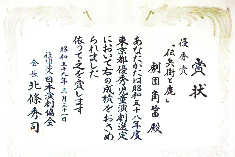 賞状
優秀賞
"伝兵衛と鹿"
劇団角笛殿
あなたがたは昭和五十八年度
東京都優秀児童演劇選定
において右の成績をおさめ
られました
依って之を賞します
昭和五十九年三月三十一日
社団法人日本演劇協会
会長 北條秀司